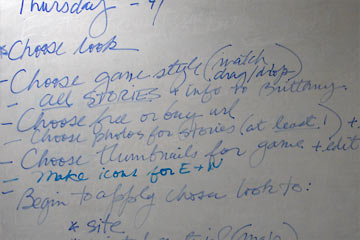 Thursday - 4/
* Choose look
- Choose game style (match
drag/drop)
- all STORIES + info to Brittany.
- Choose free or buy url
- Choose photos for stories (at least 1) +
- Choose thumbnails for games + edit
- Make icons for E + N
- Begin to apply chosen look to:
* site